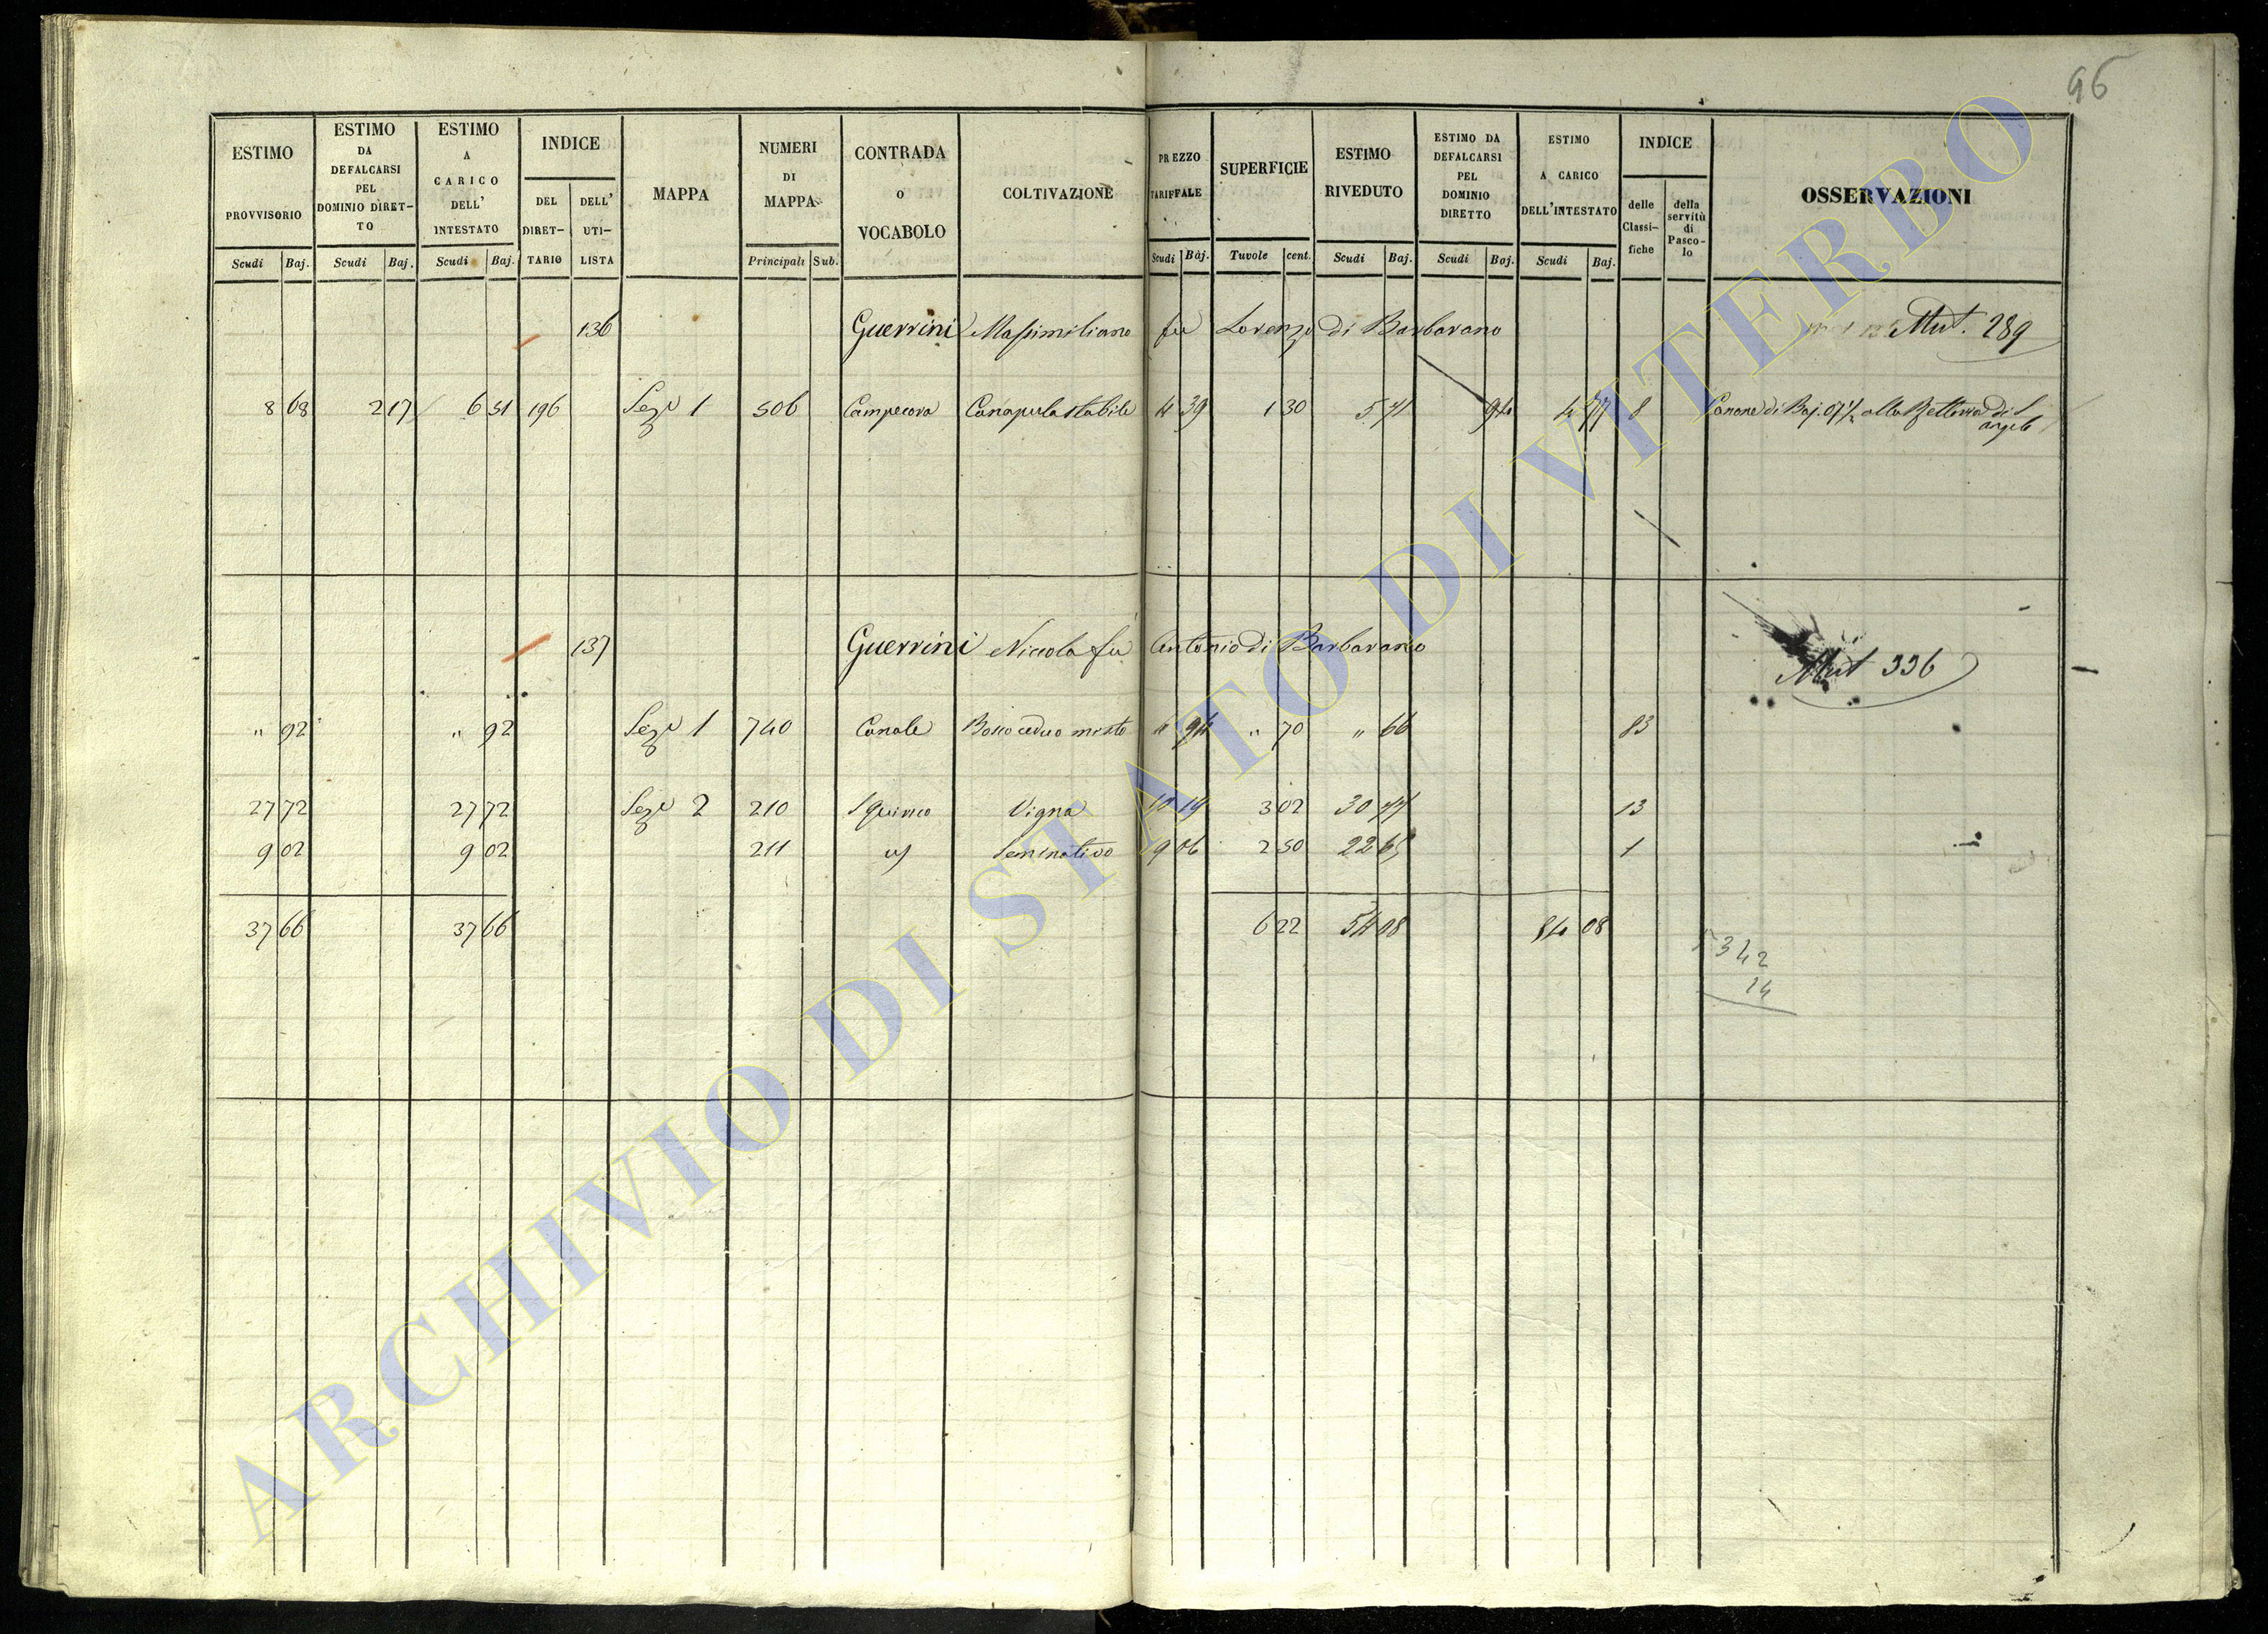 96
ESTIMO PROVVISORIO Scudi Baj.
ESTIMO DA DEFALCARSI PEL DOMINIO DIRET-TO Scudi Baj.
ESTIMO A CARICO DELL' INTESTATO Scudi Baj.
INDICE DEL DIRET-TARIO DELL' UTI-LISTA
MAPPA
NUMERI DI MAPPA Principali Sub.
CONTRADA O VOCABOLO
COLTIVAZIONE
PREZZO TARIFFALE Scudi Baj.
SUPERFICIE Tavole cent.
ESTIMO RIVEDUTO Scudi Baj.
ESTIMO DA DEFALCARSI PEL DOMINIO DIRETTO Scudi Baj.
ESTIMO A CARICO DELL'INTESTATO Scudi Baj.
INDICE delle Classi-fiche della servitù di Pasco-lo
OSSERVAZIONI
136 Guerrini Massimiliano fu Lorenzo di Barbarano Mut. 289
8 68 2 17 6 51 196 Seze 1 506 Campecora Canapula stabile 4 39 1 30 5 71 94 4 77 8 Canone di Baj. 07½ alla di S angelo
137 Guerrini Niccola fu Antonio di Barbarano Mut 336
" 92 " 92 Seze 1 740 Canale Bosco ceduo misto " 94 " 70 " 66 83
27 72 27 72 Seze 2 210 S Quirico Vigna 10 14 3 02 30 77 13
9 02 9 02 211 Seminativo 9 06 2 50 22 65 1
37 66 37 66 6 22 54 08 54 08
342
14
ARCHIVIO DI STATO DI VITERBO